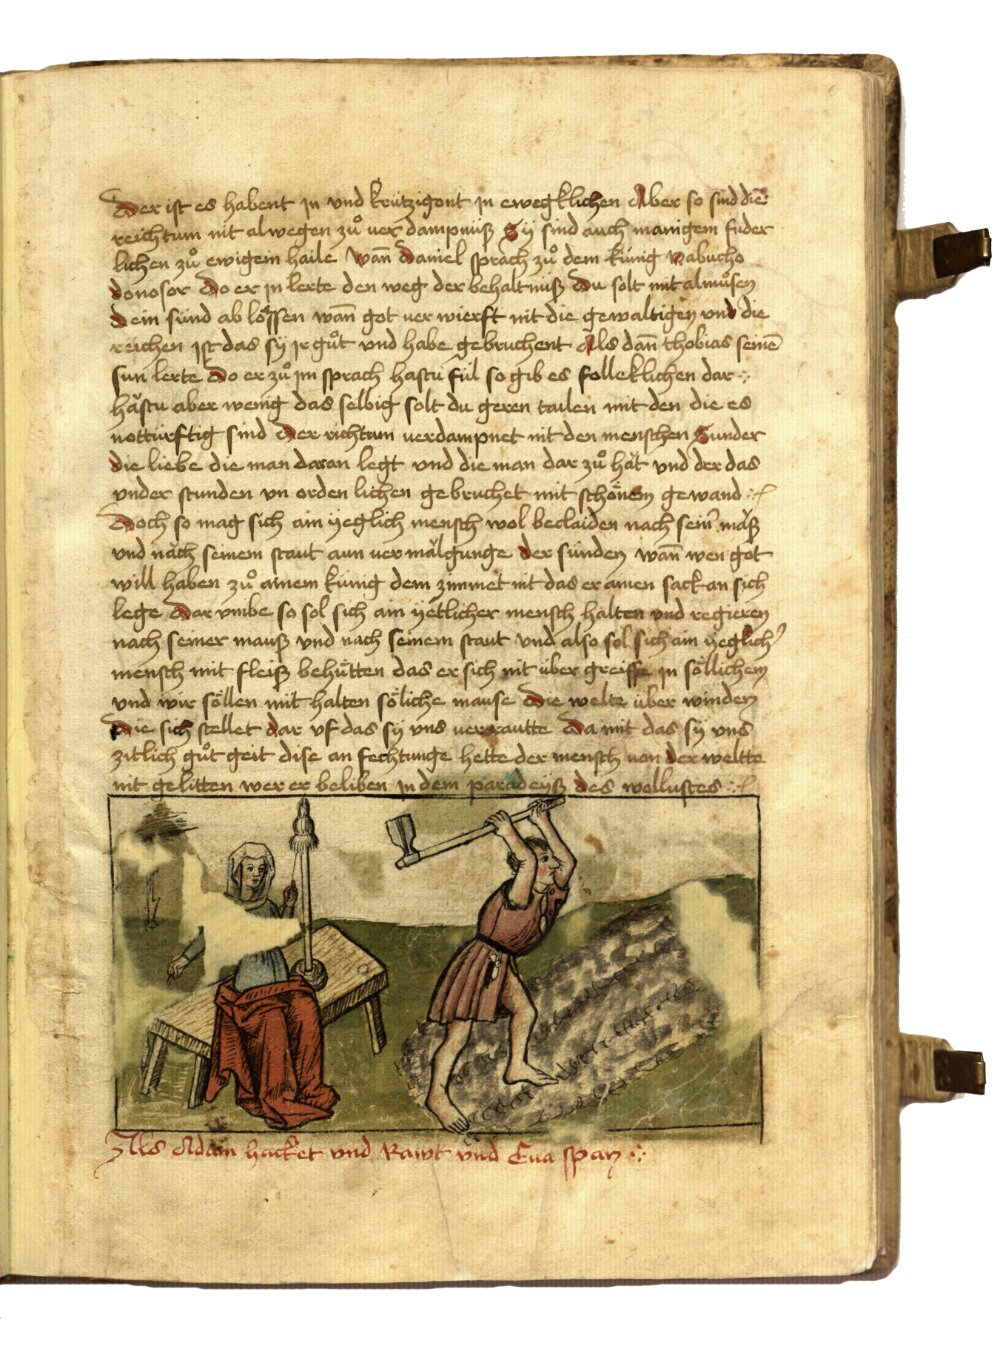 Der ist es habent jn vnd krützigont jn ewegklichen Aber so sind die
reichtum nit alwegen zuͦ uer dampnüß Sÿ sind auch manigem fuder
lichen zuͦ ewigem haile Wañ Daniel sprach zuͦ dem künig nabucho
donosor Do er jn lerte den weg der behaltnüß Du solt mit almuͦsen
Dein sünd ab loͤssen wañ got uer wierft nit die gewaltigen vnd die
reichen jst das sÿ jr guͦt vnd habe gebruchent Als dañ thobias seinē
sun lerte Do er zuͦ jm sprach hastu fül so gib es folleklichen dar
hastu aber wenig das selbig solt du geren tailen mit den die es
notturftig sind Der richtum uerdampnet nit den menschen Sunder
die liebe die man daran legt vnd die man dar zuͦ hät vnd der das
vnder stunden vn orden lichen gebruchet mit schönem gewand
Doch so mag sich ain ÿeglich mensch wol beclaiden nach sem̄ mäß
vnd näch seinem staut aun uermälgunge der sünden wañ wen got
will haben zuͦ ainem künig dem zimmet nit das er ainen sack an sich
lege Dar vmbe so sol sich ain ÿetlicher mensch halten vnd regieren
nach seiner mauß vnd nach seinem staut vnd also sol sich ain ÿeglich
mensch mit fleiß behütten das er sich nit über greiffe jn söllichem
vnd wir söllen mit halten söliche mause Die welte über winden
Die sich stellet dar vf das sÿ vns uerrautte Da mit das sÿ vns
zitlich guͦt geit dise an fechtunge hette der mensch uon der weltte
nit gelitten wer er beliben jn dem paradeÿß des wollustes
Als Adam hacket vnd Rawt vnd Eua span